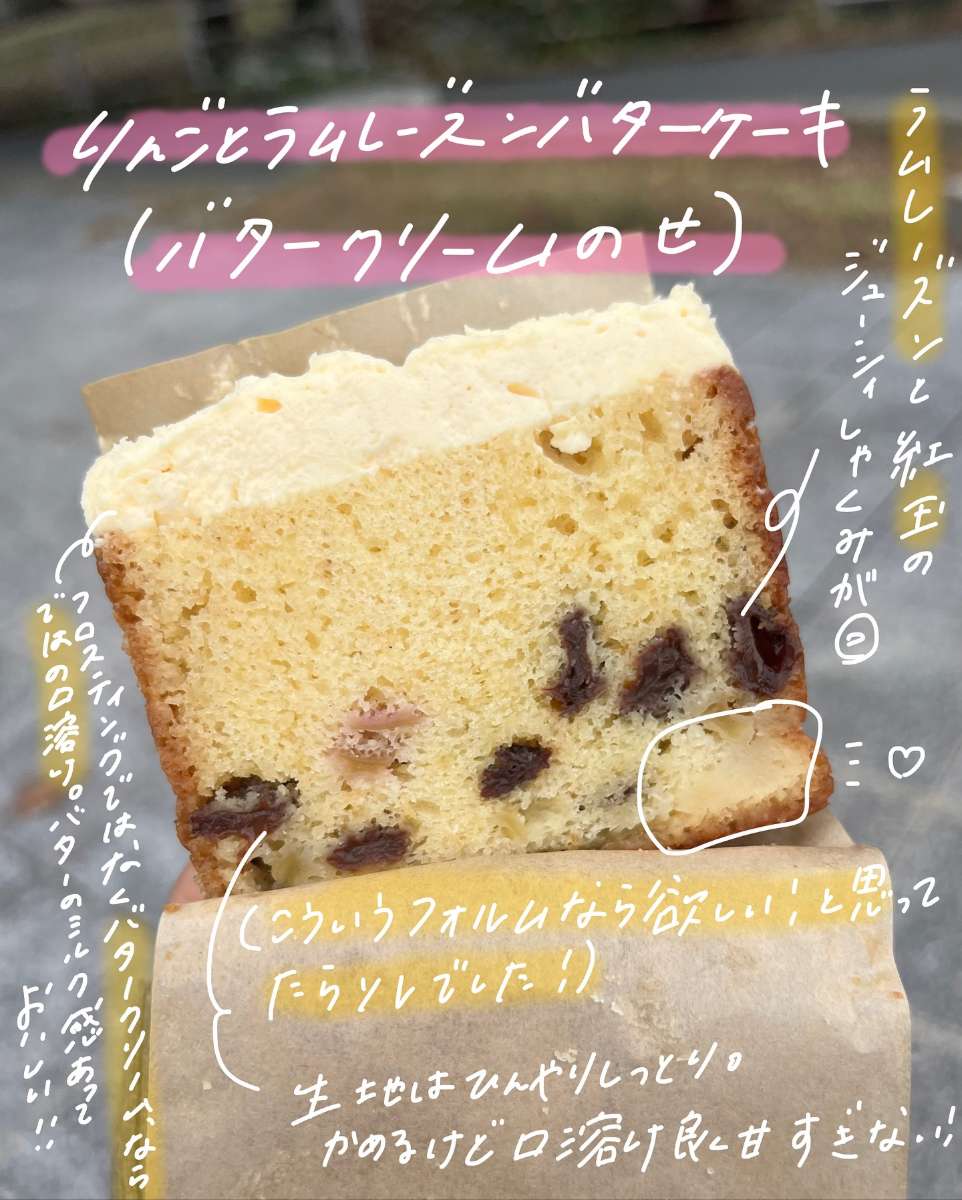 りんごとラムレーズンバターケーキ
(バタークリームのせ)
ラムレーズンと紅玉の
ジューシィしゃくみが◎
=♡
フロスティングではなくバタークリームなら
ではの口溶け。バターのミルク感あって
おいしい!!
(こういうフォルムなら欲しい!と思って
たらソレでした!)
生地はひんやりしっとり。
かめるけど口溶け良く甘すぎない!!